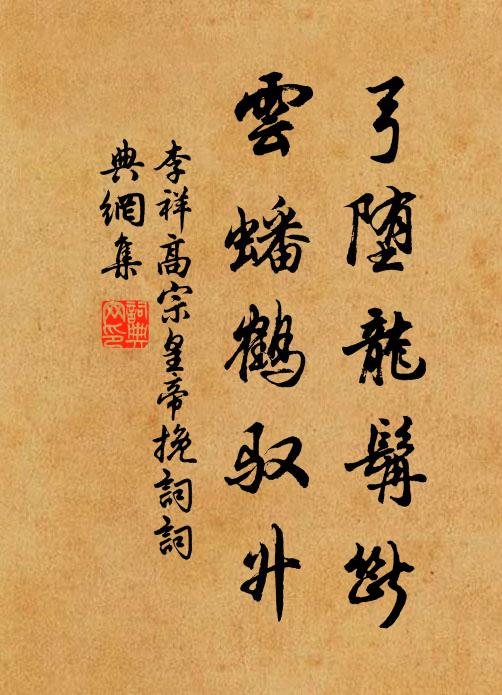 弓堕龍髯斷
雲蟠鶴馭升
李祥高宗皇帝挽詞詞
典網集
詞典網印